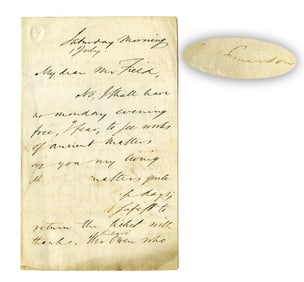 Saturday Morning
1 July
My dear Mr Field,
No, I shall have
no monday evening
free, I fear, to see works
of ancient matters
as you my living
matters quite
days,
to
return the ticket with
thanks. Mr Owen who
Emerson